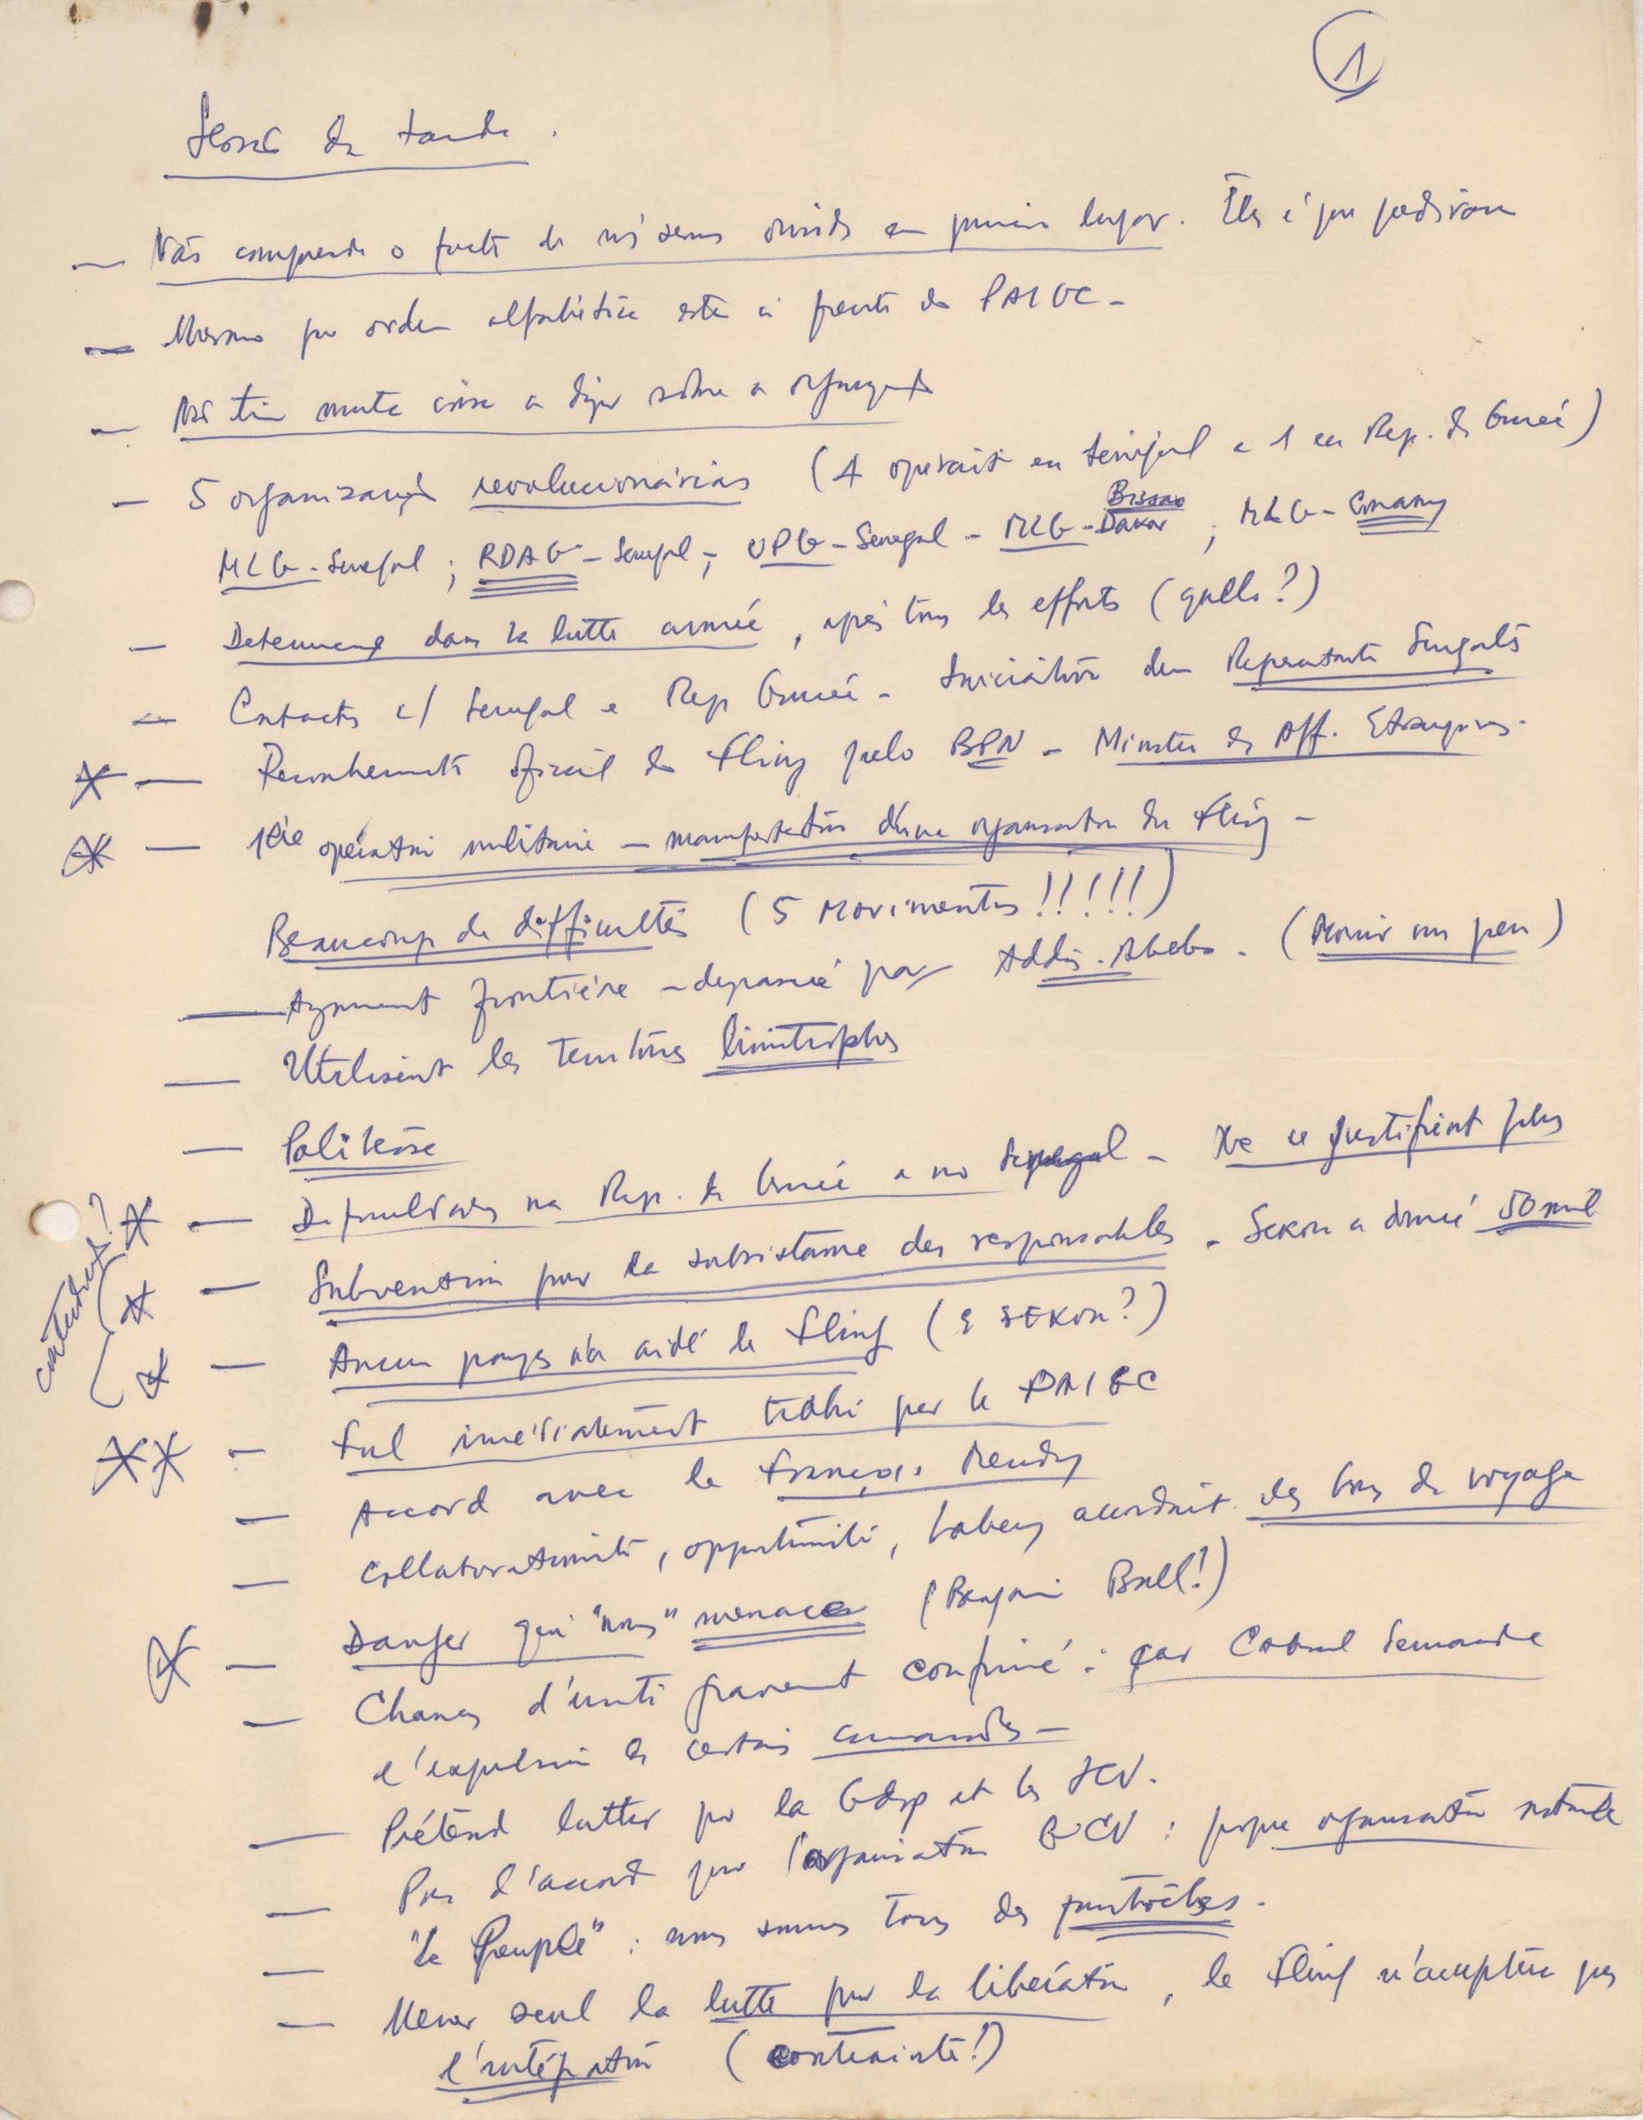 1
Sessão da tarde.
— Não compreende o facto de nós sermos ouvidos em primeiro lugar. Eles é que pediram
— Mesmo por ordem alfabética está à frente do PAIGC -
— Não tem muita coisa a dizer sobre a
— 5 organizações revolucionárias (4 operait en Sénégal e 1 en Rep. da Guiné)
MLG - Senegal ; RDAG - Senegal ; UPG - Senegal - MLG - Bissao Dakar ; MLG - Conakry
— dans la lutte armée, après tous les efforts (quells?)
— Contactos c/ Senegal e Rep Guiné - Iniciativa Representante Sengalês
— Reconhecimento oficial do Fling pelo BPN - Ministre des Aff. Etrangères -
— 1ère opération militaire - manifestation d'une organisation du Fling -
Beaucoup de difficultés (5 Movimentos !!!!!)
— Argument frontière - dépassé par Addis-Abeba - (Mourir un peu)
— Utilisent les territoires limitrophes
— Politesse
— Dificuldades na Rep. da Guiné e no Senegal - Ne se justifient plus
contradict?
— Subvention pour la subsistance des responsables - Sekou a donné 50 mil
— Aucun pays n'a aidé le Fling (E SEKOU?)
— Ful immédiatement trahi par le PAIGC
— Accord avec le François Mendy
— Collaborationniste, opportuniste, Labery accordait des bons de voyage
— Danger qui "nous" menace (Benjamin Bull!)
— Chances d'unité gravement compromises : car Cabral demande
l'expulsion de certains camarades -
— Prétend lutter pour la Gdsp et les ICV.
— Pas d'accord pour l'organisation GCV : propre organisation
— "Le Peuple" : nous sommes tous des
— Mener seul la lutte pour la libération, le Fling n'acceptera pas
l'intégration (contrainte!)